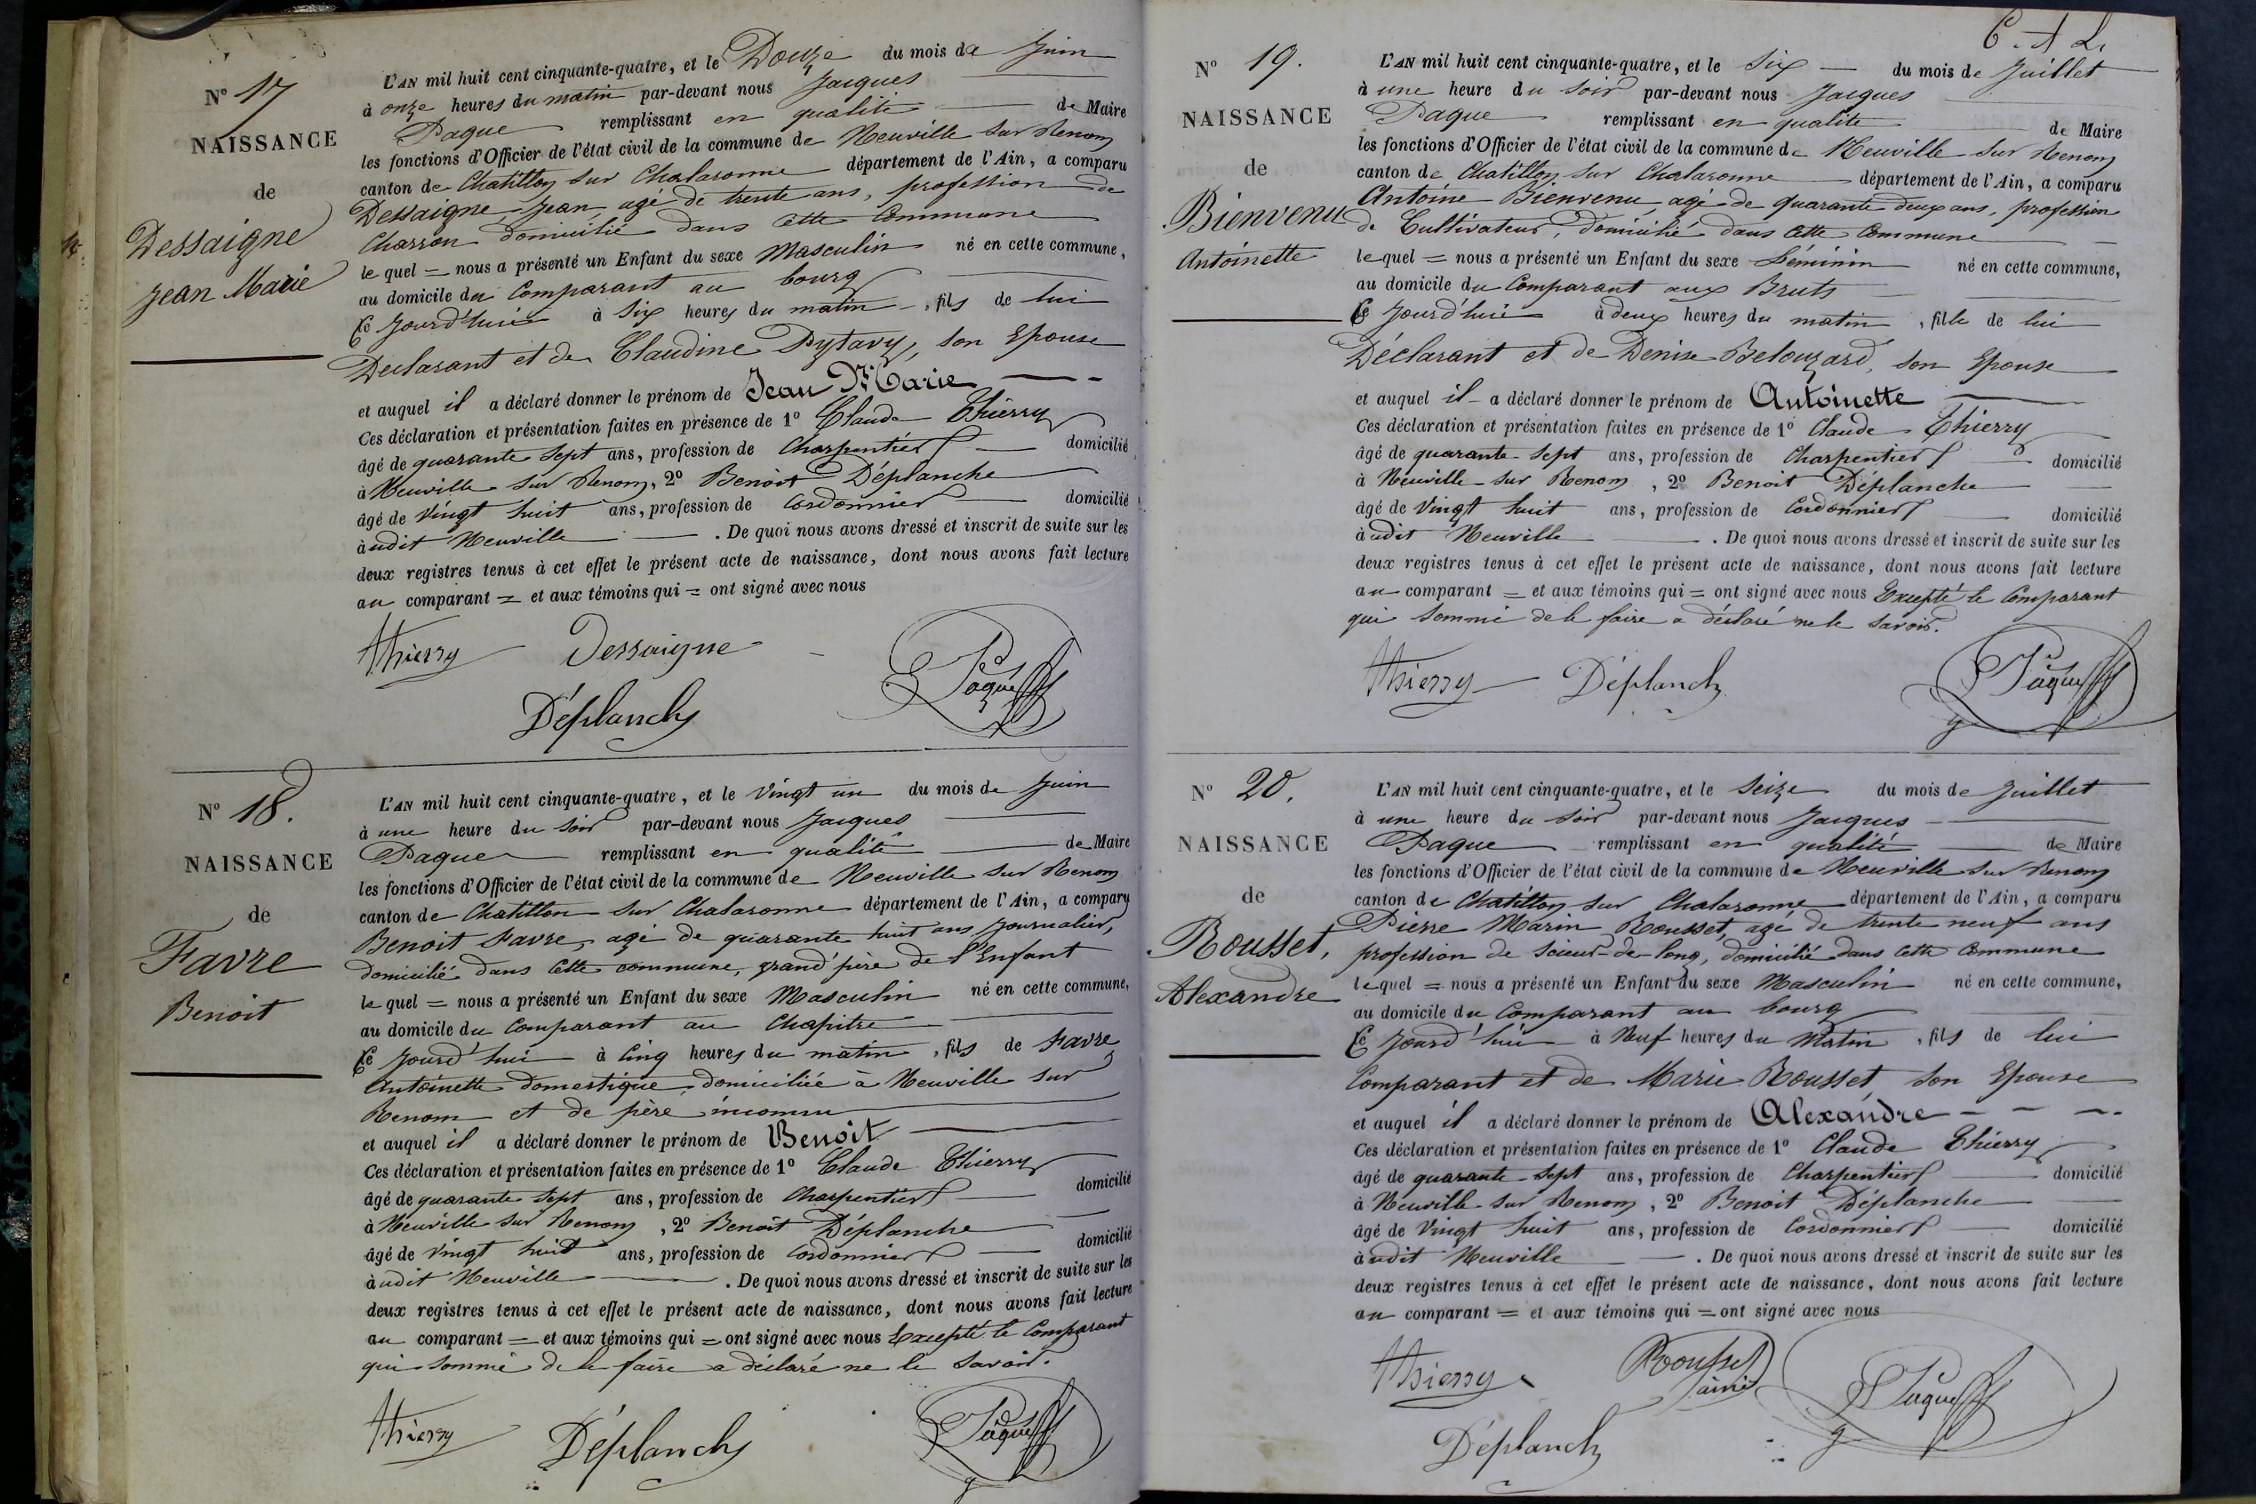 N° 17
NAISSANCE
de
Dessaigne
Jean Marie
L'AN mil huit cent cinquante-quatre, et le Douze du mois de Juin
à onze heures du matin par-devant nous Jacques
Paque remplissant en qualité de Maire
les fonctions d'Officier de l'état civil de la commune de Neuville sur Renom
canton de Chatillon sur Chalaronne département de l'Ain, a comparu
Dessaigne Jean agé de trente ans, profession de
Charron domicilié dans cette Commune
le quel = nous a présenté un Enfant du sexe Masculin né en cette commune,
au domicile du Comparant au bourg
Ce Jourd'hui à Six heures du matin, fils de lui
Déclarant et de Claudine Pytavy, son Epouse
et auquel il a déclaré donner le prénom de Jean Marie
Ces déclaration et présentation faites en présence de 1° Claude Thierry
âgé de quarante sept ans, profession de Charpentier domicilié
à Neuville sur Renom, 2° Benoit Déplanche
âgé de Vingt huit ans, profession de Cordonnier domicilié
àudit Neuville. De quoi nous avons dressé et inscrit de suite sur les
deux registres tenus à cet effet le présent acte de naissance, dont nous avons fait lecture
au comparant = et aux témoins qui = ont signé avec nous
Thierry Dessaigne
Paque
Déplanch
N° 18.
NAISSANCE
de
Favre
Benoit
L'AN mil huit cent cinquante-quatre, et le Vingt un du mois de Juin
à une heure du soir par-devant nous Jacques
Paque remplissant en qualité de Maire
les fonctions d'Officier de l'état civil de la commune de Neuville sur Renom
canton de Chatillon sur Chalaronne département de l'Ain, a comparu
Benoit Favre, agé de quarante huit ans Journalier,
domicilié dans cette commune, grand'père de l'Enfant
le quel = nous a présenté un Enfant du sexe Masculin né en cette commune,
au domicile du Comparant au Chapitre
Ce Jourd'hui à Cinq heures du matin, fils de Favre
Antoinette domestique domiciliée à Neuville sur
Renom et de père inconnu
et auquel il a déclaré donner le prénom de Benoit
Ces déclaration et présentation faites en présence de 1° Claude Thierry
âgé de quarante sept ans, profession de Charpentier domicilié
à Neuville sur Renom, 2° Benoit Déplanche
âgé de Vingt huit ans, profession de Cordonnier domicilié
àudit Neuville. De quoi nous avons dressé et inscrit de suite sur les
deux registres tenus à cet effet le présent acte de naissance, dont nous avons fait lecture
au comparant = et aux témoins qui = ont signé avec nous Excepté le Comparant
qui sommé de le faire a déclaré ne le savoir.
Thierry Déplanch Paque
C. A L.
N° 19.
NAISSANCE
de
Bienvenu
Antoinette
L'AN mil huit cent cinquante-quatre, et le Six du mois de Juillet
à une heure du soir par-devant nous Jacques
Paque remplissant en qualité de Maire
les fonctions d'Officier de l'état civil de la commune de Neuville sur Renom
canton de Chatillon sur Chalaronne département de l'Ain, a comparu
Antoine Bienvenu agé de quarante deux ans, profession
de Cultivateur, domicilié dans cette Commune
le quel = nous a présenté un Enfant du sexe Féminin né en cette commune,
au domicile du Comparant aux Bruts
Ce Jourd'hui à deux heures du matin, fille de lui
Déclarant et de Denise Belouzard, son Epouse
et auquel il a déclaré donner le prénom de Antoinette
Ces déclaration et présentation faites en présence de 1° Claude Thierry
âgé de quarante sept ans, profession de Charpentier domicilié
à Neuville sur Renom, 2° Benoit Déplanche
âgé de Vingt huit ans, profession de Cordonnier domicilié
àudit Neuville. De quoi nous avons dressé et inscrit de suite sur les
deux registres tenus à cet effet le présent acte de naissance, dont nous avons fait lecture
au comparant = et aux témoins qui = ont signé avec nous Excepté le Comparant
qui sommé de le faire a déclaré ne le savoir.
Thierry Déplanch Paque
N° 20.
NAISSANCE
de
Rousset,
Alexandre
L'AN mil huit cent cinquante-quatre, et le Seize du mois de Juillet
à une heure du soir par-devant nous Jacques
Paque remplissant en qualité de Maire
les fonctions d'Officier de l'état civil de la commune de Neuville sur Renom
canton de Chatillon sur Chalaronne département de l'Ain, a comparu
Pierre Marin Rousset, agé de trente neuf ans
profession de Scieur-de-long, domicilié dans cette Commune
le quel = nous a présenté un Enfant du sexe Masculin né en cette commune,
au domicile du Comparant au bourg
Ce Jourd'hui à Neuf heures du Matin, fils de lui
Comparant et de Marie Rousset son Epouse
et auquel il a déclaré donner le prénom de Alexandre
Ces déclaration et présentation faites en présence de 1° Claude Thierry
âgé de quarante sept ans, profession de Charpentier domicilié
à Neuville sur Renom, 2° Benoit Déplanche
âgé de Vingt huit ans, profession de Cordonnier domicilié
àudit Neuville. De quoi nous avons dressé et inscrit de suite sur les
deux registres tenus à cet effet le présent acte de naissance, dont nous avons fait lecture
au comparant = et aux témoins qui = ont signé avec nous
Thierry Rousset
ainé
Paque
Déplanch